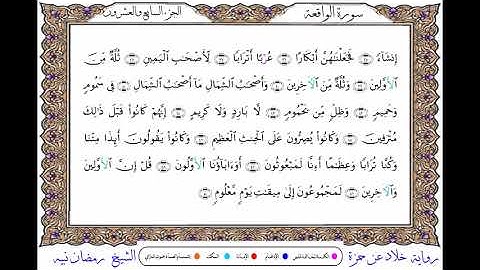 سورة الواقعة
الجزء السابع والعشرون
إِنشَآءً فَجَعَلْنَٰهُنَّ أَبْكَارًا عُرْبًا أَتْرَابًا لِّأَصْحَٰبِ ٱلْيَمِينِ ثُلَّةٌ مِّنَ
ٱلْأَوَّلِينَ وَثُلَّةٌ مِّنَ ٱلْأَخِرِينَ وَأَصْحَٰبُ ٱلشِّمَالِ مَآ أَصْحَٰبُ ٱلشِّمَالِ فِي سَمُومٍ
وَحَمِيمٍ وَظِلٍّ مِّن يَحْمُومٍ لَّا بَارِدٍ وَلَا كَرِيمٍ إِنَّهُمْ كَانُوا۟ قَبْلَ ذَٰلِكَ
مُتْرَفِينَ وَكَانُوا۟ يُصِرُّونَ عَلَى ٱلْحِنثِ ٱلْعَظِيمِ وَكَانُوا۟ يَقُولُونَ أَئِذَا مِتْنَا
وَكُنَّا تُرَابًا وَعِظَٰمًا أَءِنَّا لَمَبْعُوثُونَ أَوَءَابَآؤُنَا ٱلْأَوَّلُونَ قُلْ إِنَّ ٱلْأَوَّلِينَ
وَٱلْأَخِرِينَ لَمَجْمُوعُونَ إِلَىٰ مِيقَٰتِ يَوْمٍ مَّعْلُومٍ
رواية خلاد عن حمزة
الشيخ رمضان نبيه